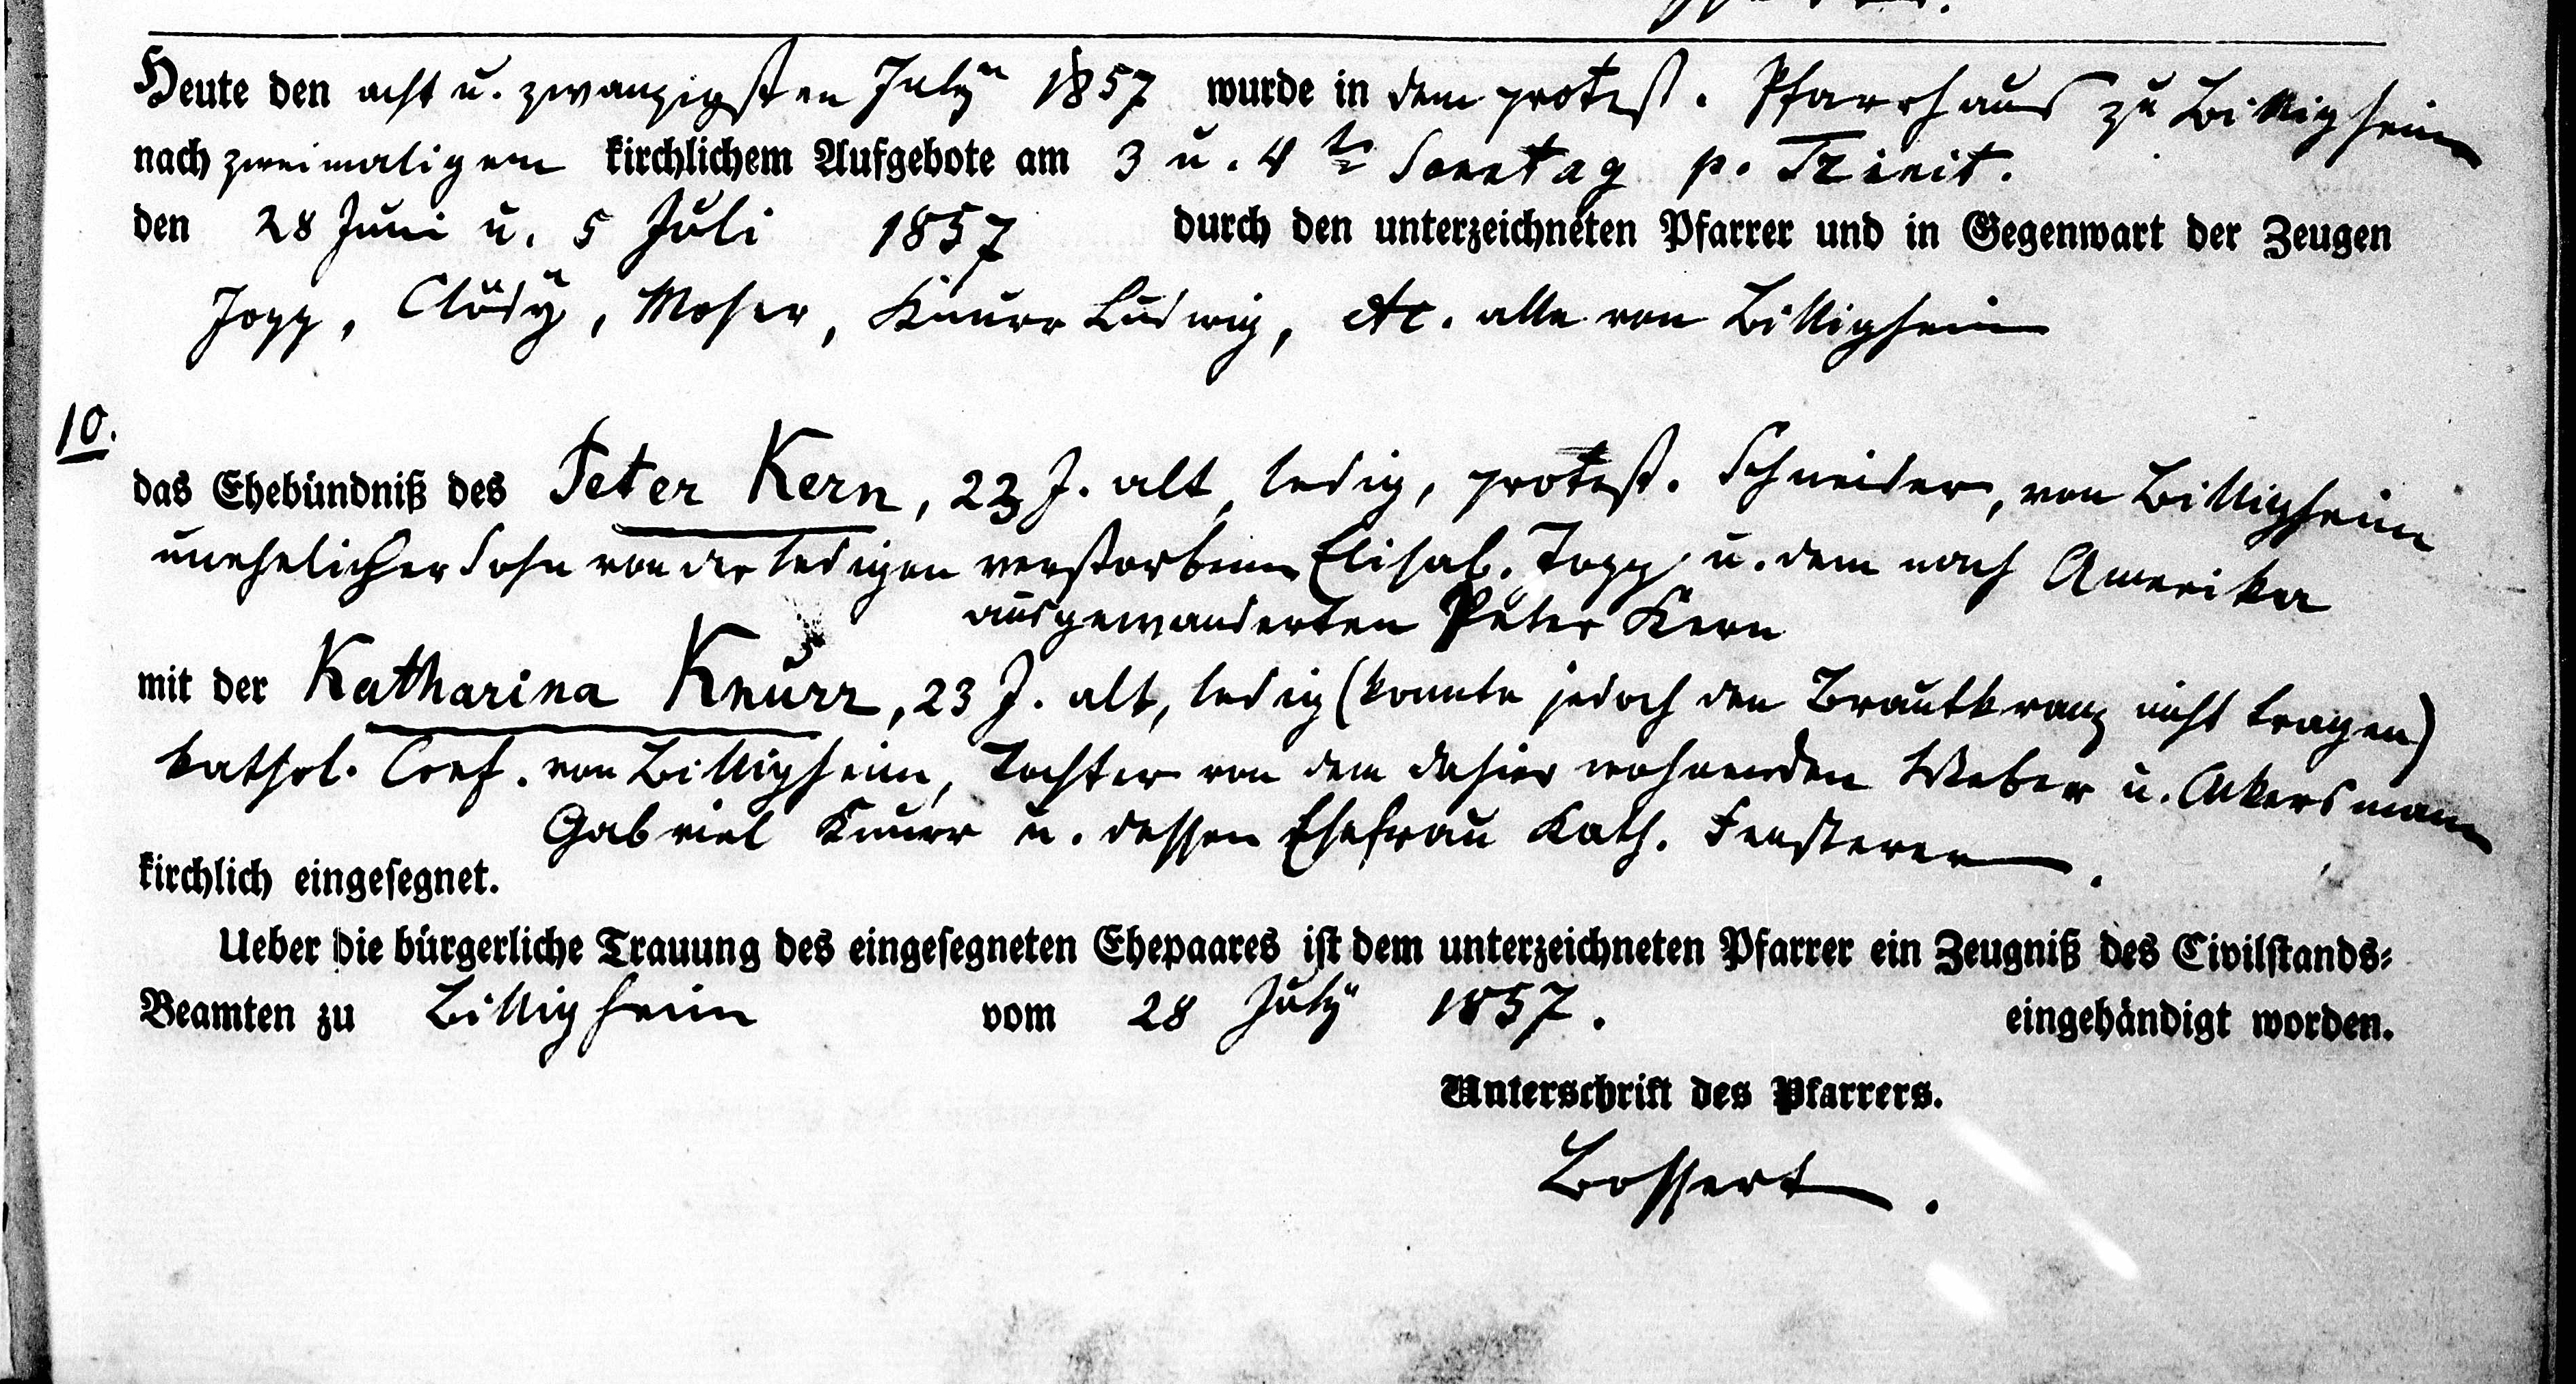 Heute den acht u. zwanzigsten July 1857 wurde in dem protest. Pfarrhaus zu Billigheim
nach zweimaligem kirchlichem Aufgebote am 3 u. 4 te Sonntag p. Trinit.
den 28 Juni u. 5 Juli 1857 durch den unterzeichneten Pfarrer und in Gegenwart der Zeugen
Jopp, Clödÿ, Moser, Knurr Ludwig, etc. alle von Billigheim
10.
das Ehebündniß des Peter Kern, 23 J. alt, ledig, protest. Schneider, von Billigheim
unehelicher Sohn von der ledigen verstorbenen Elisab. Jopp u. dem nach Amerika
ausgewanderten Peter Kern
mit der Katharina Knurr, 23 J. alt, ledig (konnte jedoch den Brautkranz nicht tragen)
kathol. Conf. von Billigheim, Tochter von dem dahier wohnenden Weber u. Akersmann
Gabriel Knurr u. dessen Ehefrau Kath. Fensterer.
kirchlich eingesegnet.
Ueber die bürgerliche Trauung des eingesegneten Ehepaares ist dem unterzeichneten Pfarrer ein Zeugniß des Civilstands-
Beamten zu Billigheim vom 28 July 1857. eingehändigt worden.
Unterschrift des Pfarrers.
Bossert.